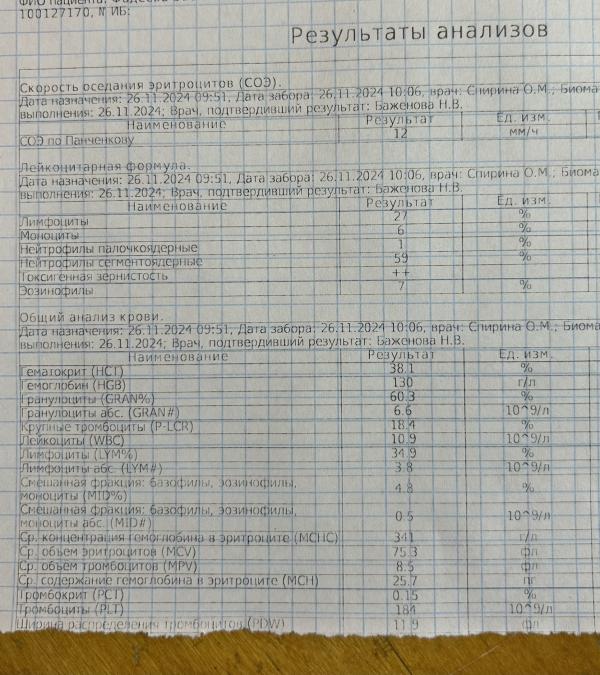 100127170, N ИБ:
Результаты анализов
Скорость оседания эритроцитов (СОЭ).
Дата назначения: 26.11.2024 09:51, Дата забора: 26.11.2024 10:06, врач: Спирина О.М.; Биома
выполнения: 26.11.2024; Врач, подтвердивший результат: Баженова Н.В.
Наименование Результат Ед. изм.
СОЭ по Панченкову 12 мм/ч
Лейкоцитарная формула.
Дата назначения: 26.11.2024 09:51, Дата забора: 26.11.2024 10:06, врач: Спирина О.М.; Биома
выполнения: 26.11.2024; Врач, подтвердивший результат: Баженова Н.В.
Наименование Результат Ед. изм.
Лимфоциты 27 %
Моноциты 6 %
Нейтрофилы палочкоядерные 1 %
Нейтрофилы сегментоядерные 59 %
Токсигенная зернистость ++
Эозинофилы 7 %
Общий анализ крови.
Дата назначения: 26.11.2024 09:51, Дата забора: 26.11.2024 10:06, врач: Спирина О.М.; Биома
выполнения: 26.11.2024; Врач, подтвердивший результат: Баженова Н.В.
Наименование Результат Ед. изм.
Гематокрит (HCT) 38.1 %
Гемоглобин (HGB) 130 г/л
Гранулоциты (GRAN%) 60.3 %
Гранулоциты абс. (GRAN#) 6.6 10^9/л
Крупные тромбоциты (P-LCR) 18.4 %
Лейкоциты (WBC) 10.9 10^9/л
Лимфоциты (LYM%) 34.9 %
Лимфоциты абс. (LYM#) 3.8 10^9/л
Смешанная фракция: базофилы, эозинофилы,
моноциты (MID%) 4.8 %
Смешанная фракция: базофилы, эозинофилы,
моноциты абс. (MID#) 0.5 10^9/л
Ср. концентрация гемоглобина в эритроците (MCHC) 341 г/л
Ср. объем эритроцитов (MCV) 75.3 фл
Ср. объем тромбоцитов (MPV) 8.5 фл
Ср. содержание гемоглобина в эритроците (MCH) 25.7 пг
Тромбокрит (PCT) 0.15 %
Тромбоциты (PLT) 184 10^9/л
Ширина распределения тромбоцитов (PDW) 11.9 фл